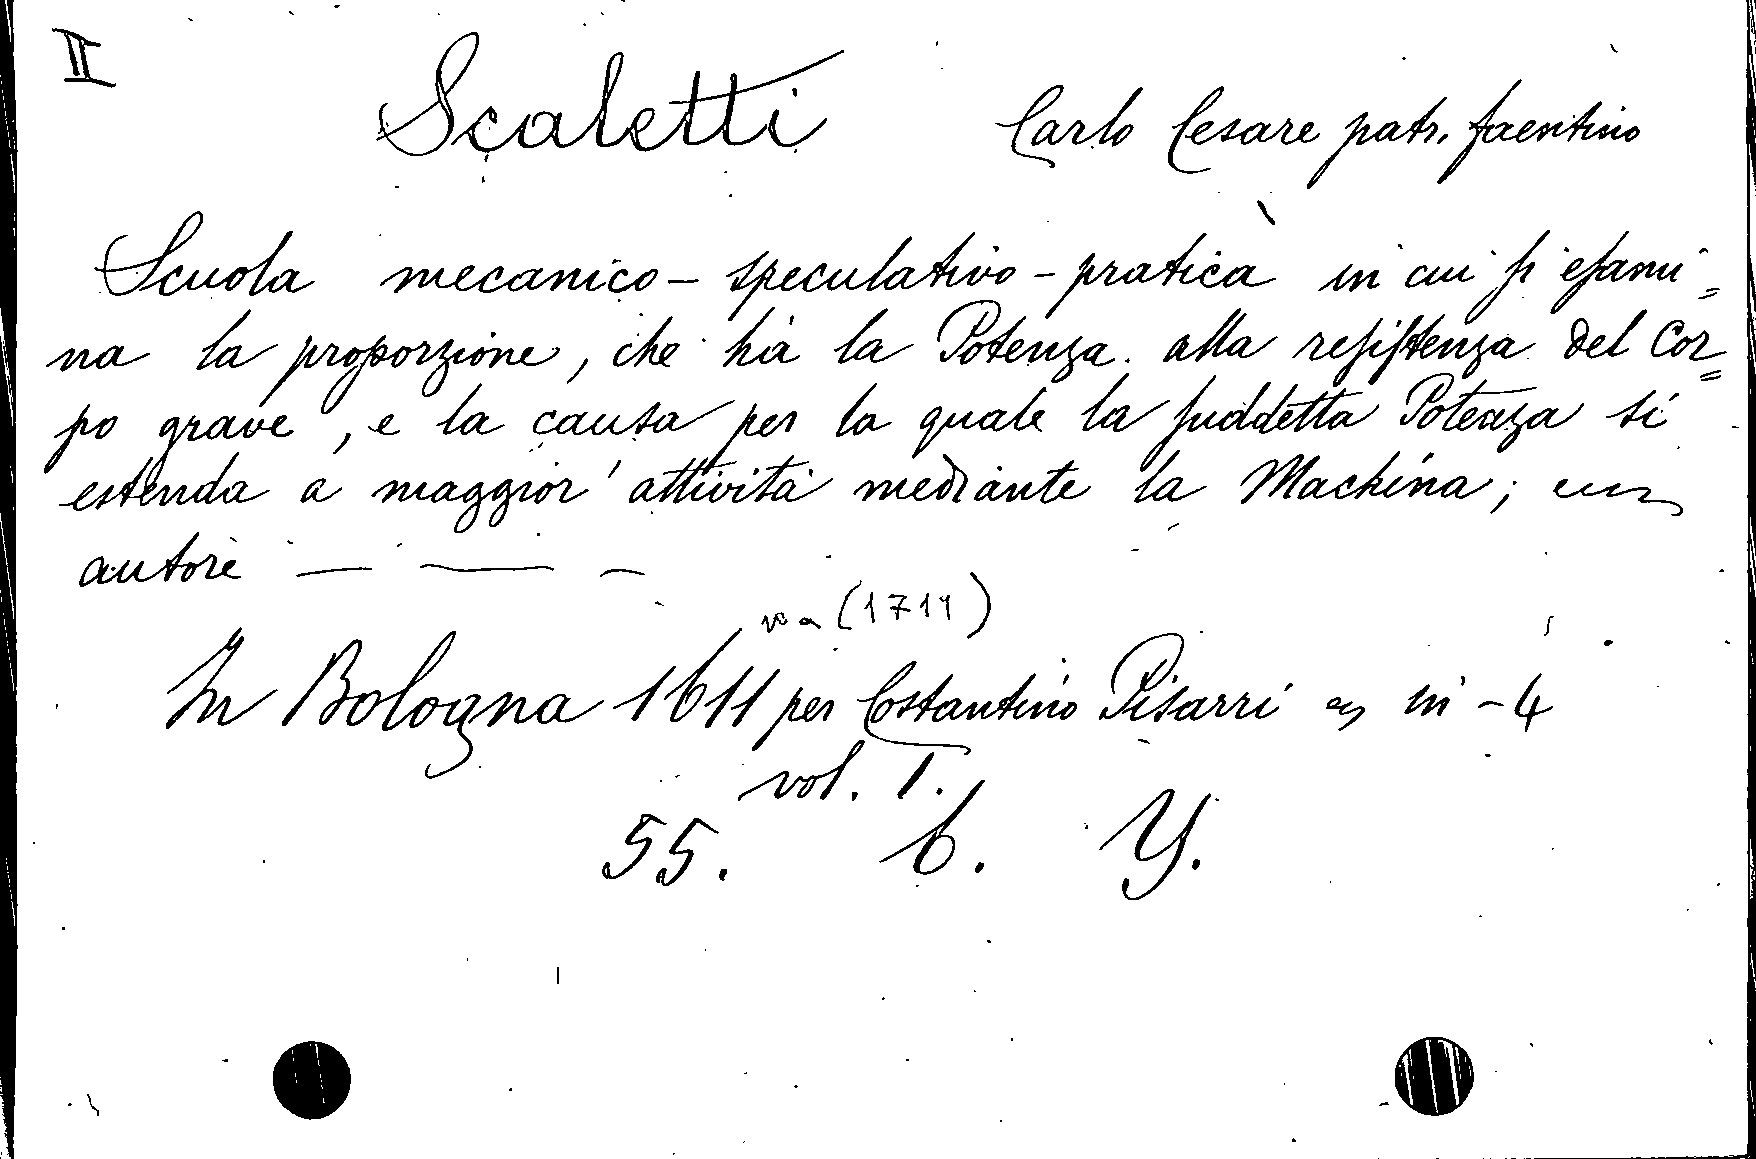 II
Scaletti Carlo Cesare patr. faentino
Scuola mecanico - speculativo - pratica in cui ſi eſami=
na la proporzione, che hà la Potenza alla reſiſtenza del Cor=
po grave, e la causa per la quale la ſuddetta Potenza si
estenda a maggior' attività mediante la Machina;
autore — — —
(1711)
In Bologna 1611 per Costantino Pisarri in - 4
vol. I.
55. b. Y.